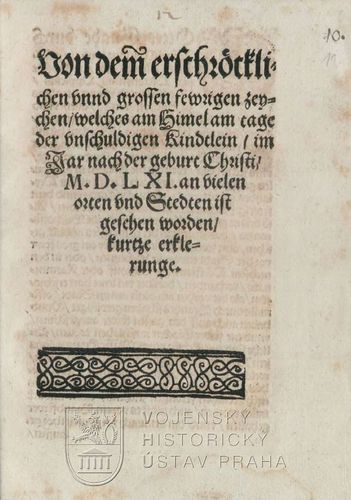 12
10.
11
Von dem̃ erschröckli-
chen vnnd grossen fewrigen zey-
chen/welches am Himel am tage
der vnschuldigen Kindtlein/im
Jar nach der geburt Christi/
M. D. LXI. an vielen
orten vnd Stedten ist
gesehen worden/
kurtze erkle-
runge.
VOJENSKÝ
HISTORICKÝ
ÚSTAV PRAHA